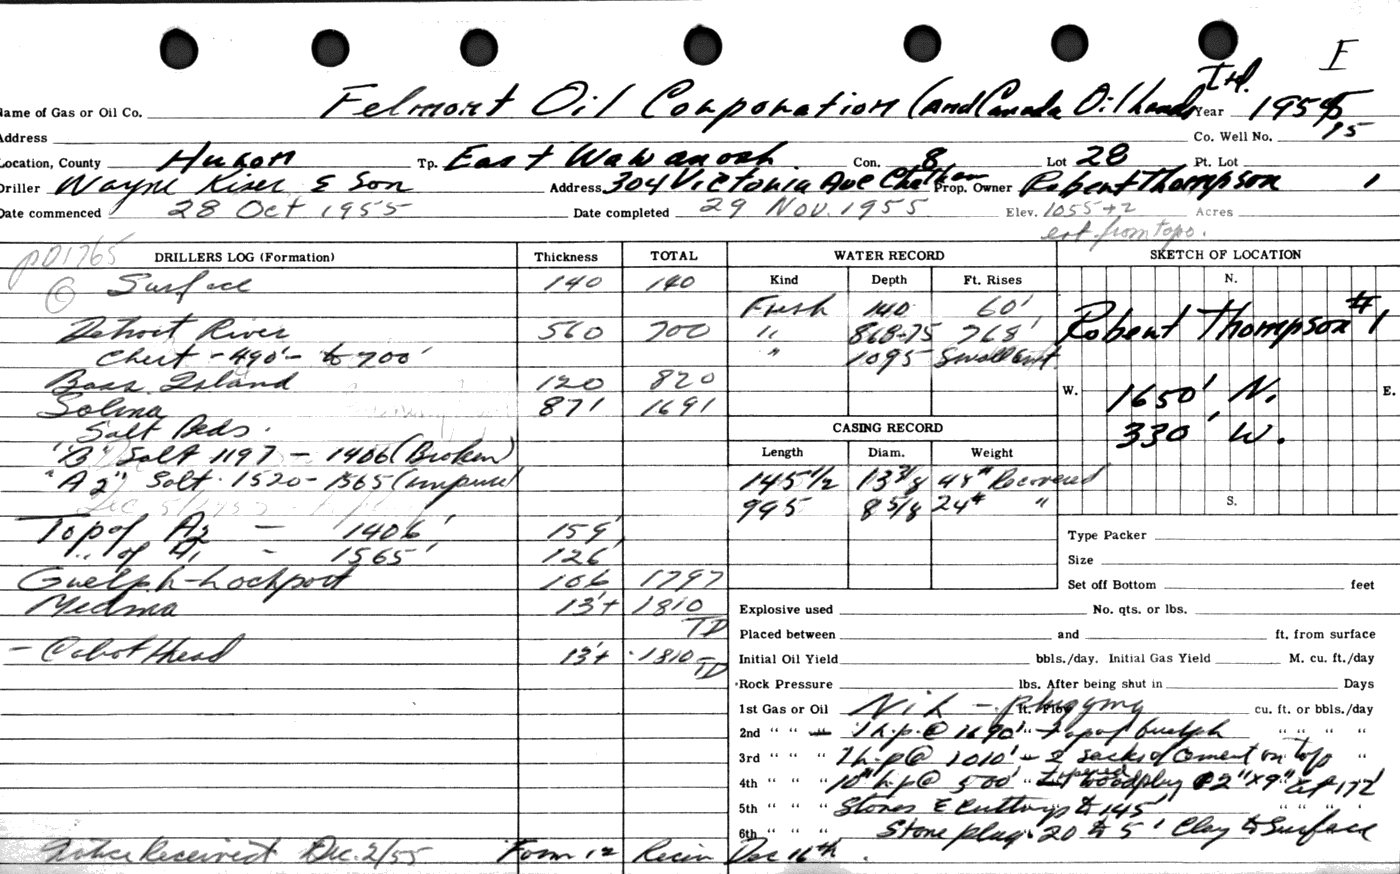 I
Name of Gas or Oil Co. Felmont Oil Corporation (and Canada Oil Lands Ltd. Year 1955
95
Address Co. Well No.
Location, County Huron Tp. East Wawanosh Con. 8 Lot 28 Pt. Lot
Driller Wayne Kiser & Son Address 304 Victoria Ave Chatham Prop. Owner Robert Thompson 1
Date commenced 28 Oct 1955 Date completed 29 Nov. 1955 Elev. 1055 +2 Acres
est. from topo.
PD1765
DRILLERS LOG (Formation) Thickness TOTAL
© Surface 140 140
Detroit River 560 700
Chert - 490' - to 700'
Bass Island 120 820
Salina 871 1691
Salt Beds.
"B" Salt 1197 - 1406 (Broken)
"A2" Salt 1520 - 1565 (impure)
Top of A2 - 1406' 159'
" of A1 - 1565' 126'
Guelph-Lockport 106 1797
Medina 13+ 1810
TD
- Cabot Head 13+ 1810 -
TD
WATER RECORD
Kind Depth Ft. Rises
Fresh 140 60'
" 868-75 768'
" 1095 Small amt.
CASING RECORD
Length Diam. Weight
145 1/2 13 3/8 48# Recovered
995 8 5/8 24# "
SKETCH OF LOCATION
N.
Robert Thompson #1
W. 1650' N. E.
330' W.
S.
Type Packer
Size
Set off Bottom feet
Explosive used No. qts. or lbs.
Placed between and ft. from surface
Initial Oil Yield bbls./day. Initial Gas Yield M. cu. ft./day
Rock Pressure lbs. After being shut in Days
1st Gas or Oil Nil - plugging ft. Flow cu. ft. or bbls./day
2nd " " " 1 h.p. @ 1690' - top of Guelph " " " "
3rd " " " 1 h.p @ 1010' - 2 sacks of cement on top "
4th " " " 10" h.p @ 500' woodplug 2" x 9" at 172'
5th " " " Stones & Cuttings to 145' " " "
6th " " " Stone plug 20 to 5' Clay to Surface
Notice Received Dec. 2/55 Form 12 Recv Dec 16th.